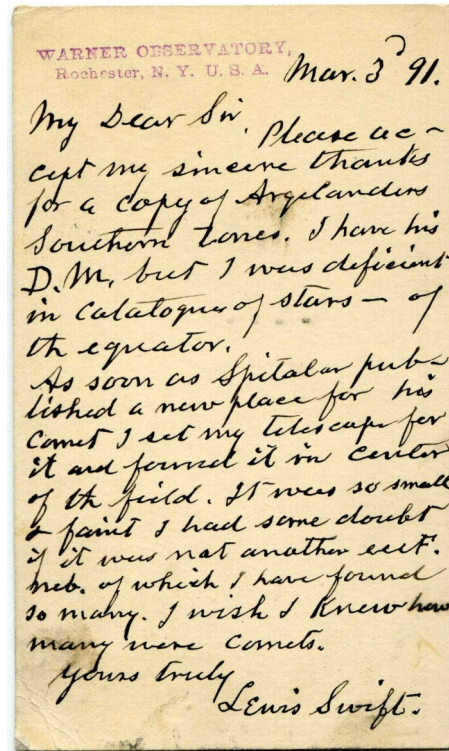 WARNER OBSERVATORY,
Rochester, N. Y. U. S. A.
Mar. 3 91.
My Dear Sir
Please ac-
cept my sincere thanks
for a copy of Argelanders
Southern Zones. I have his
D.M, but I was deficient
in catalogues of stars — of
th equator.
As soon as Spitalar pub-
lished a new place for his
comet I set my telescope for
it and found it in center
of th field. It was so small
& faint I had some doubt
if it was not another
neb. of which I have found
so many. I wish I knew how
many were comets.
yours truly
Lewis Swift.